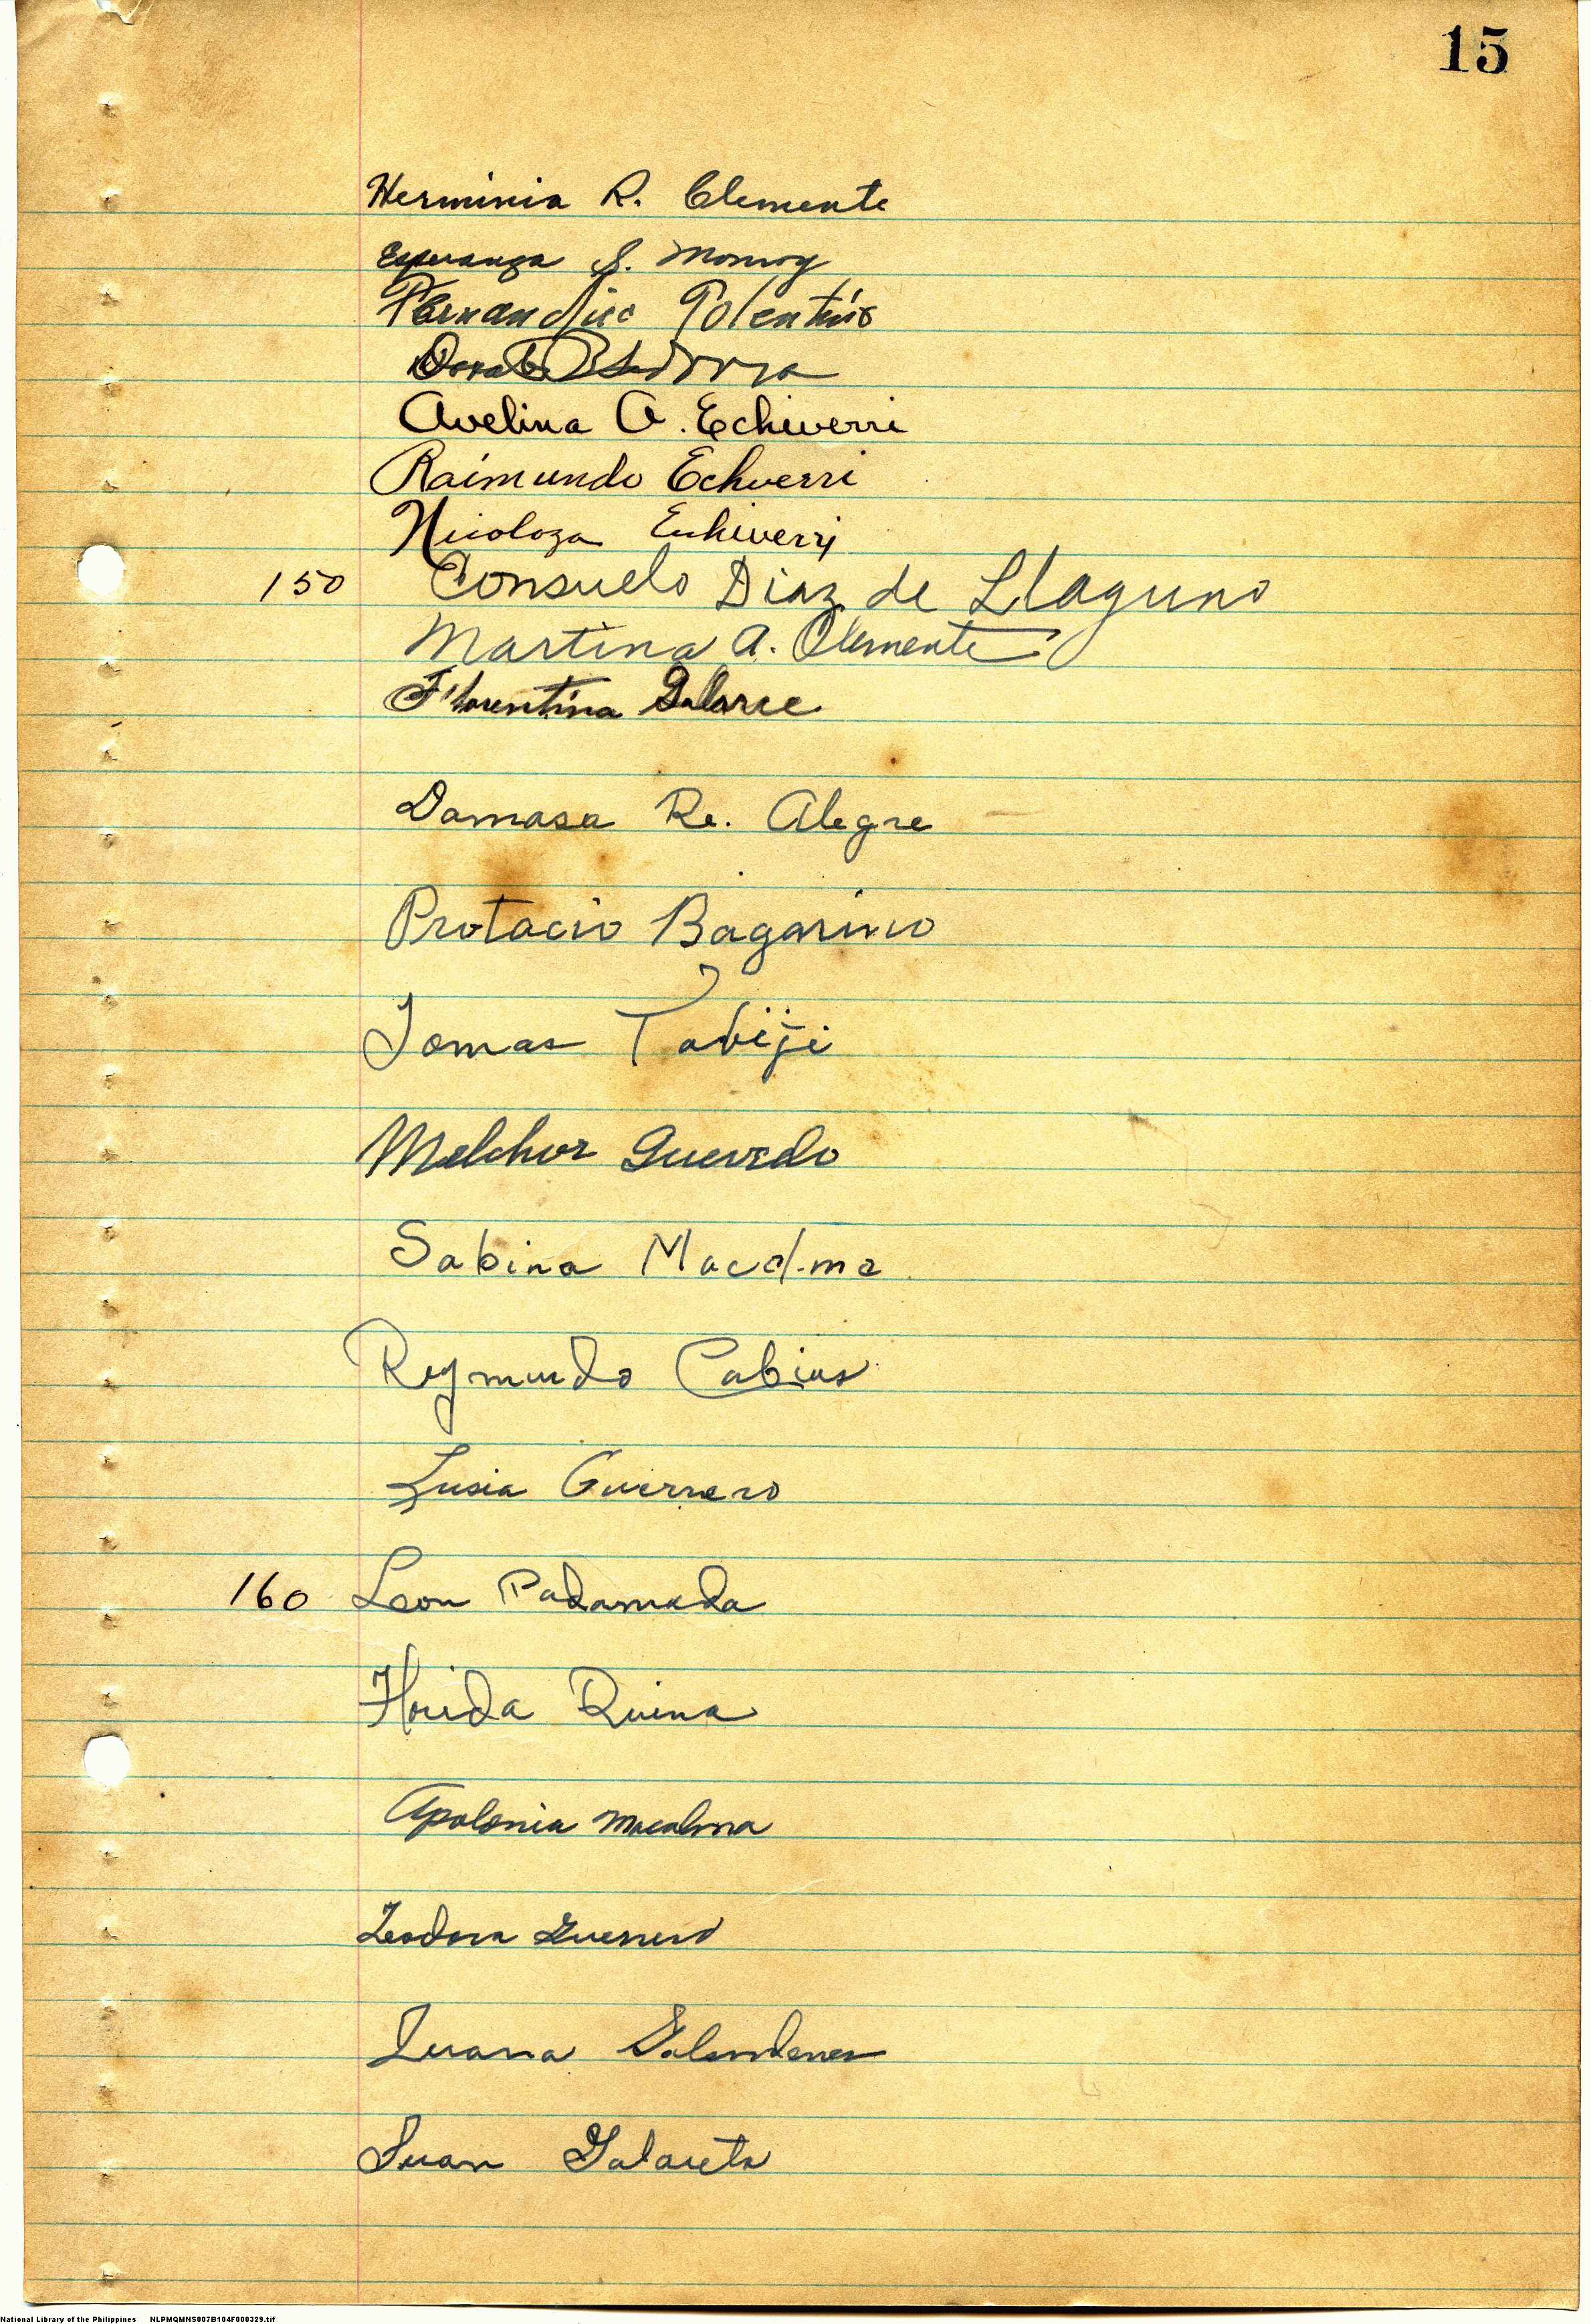 15
Herminia R. Clemente
Esperanza S. Monroy
Fernandino Tolentino
Avelina A. Echiverri
Raimundo Echverri
Nicolaza Echiverri
150 Consuelo Diaz de Llaguno
Martina A. Clemente
Florentina
Damasa Re. Alegre
Protacio Bagarino
Tomas Tabiji
Melchor Quevedo
Sabina
Reymundo Cabias
Lusia Guerrero
160 Leon Padamada
Florida Quina
Apolonia Macalma
Teodora Guerrero
Juana
Juan Galareta
National Library of the Philippines NLPMQMNS007B104F000329.tif